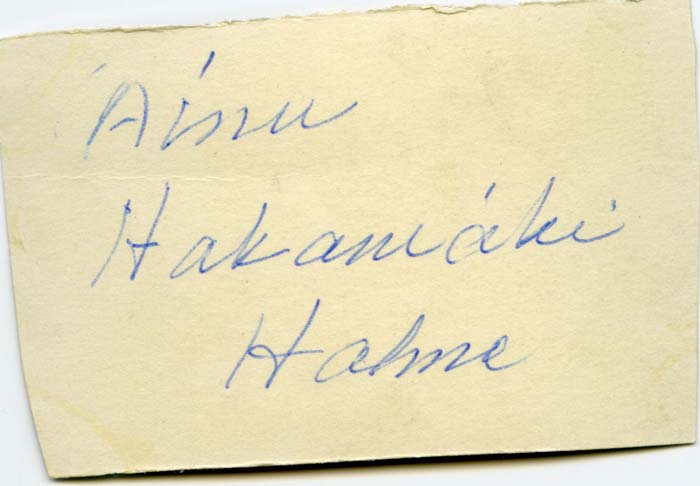 Ainu
Hakamäki
Halme